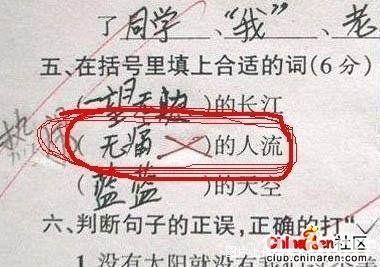 了同学、“我”、老
五、在括号里填上合适的词(6分)
(一望无)的长江
(无痛)的人流
(蓝蓝)的天空
六、判断句子的正误，正确的打“✓
1.没有太阳就没有我们
ChinaRen社区
club.chinaren.com